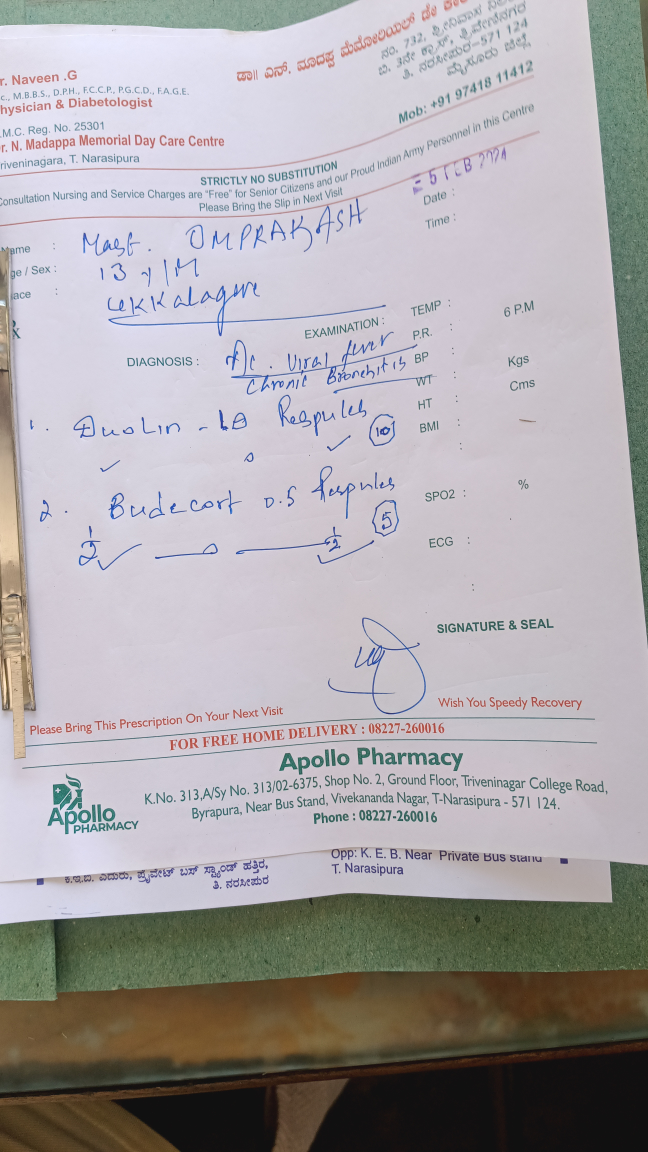 r. Naveen .G
c., M.B.B.S., D.P.H., F.C.C.P., P.G.C.D., F.A.G.E.
hysician & Diabetologist
.M.C. Reg. No. 25301
r. N. Madappa Memorial Day Care Centre
riveninagara, T. Narasipura
ಡಾ|| ಎನ್. ಮಾದಪ್ಪ ಮೆಮೋರಿಯಲ್ ಡೇ ಕೇರ್
ನಂ. 732, ಶ್ರೀನಿವಾಸ
ಬಿ. 3ನೇ ಕ್ರಾಸ್, ತ್ರಿವೇಣಿನಗರ
ತಿ. ನರಸೀಪುರ–571 124
ಮೈಸೂರು ಜಿಲ್ಲೆ
Mob: +91 97418 11412
STRICTLY NO SUBSTITUTION
Consultation Nursing and Service Charges are "Free" for Senior Citizens and our Proud Indian Army Personnel in this Centre
Please Bring the Slip in Next Visit
5 FEB 2024
Date :
Name : Mast. OMPRAKASH
Time :
ge / Sex : 13 y/M
lace :
Rx
EXAMINATION : TEMP : 6 P.M
DIAGNOSIS : Ac. Viral fever P.R. :
Chronic Bronchitis BP :
WT : Kgs
1. Duolin - LD Respules HT : Cms
✓ o ✓ 10 BMI :
:
2. Budecort 0.5 Respules SPO2 : %
1/2 ✓ — o — 1/2 ✓ 5 ECG :
:
SIGNATURE & SEAL
Please Bring This Prescription On Your Next Visit Wish You Speedy Recovery
FOR FREE HOME DELIVERY : 08227-260016
Apollo Pharmacy
Apollo
PHARMACY
K.No. 313,A/Sy No. 313/02-6375, Shop No. 2, Ground Floor, Triveninagar College Road,
Byrapura, Near Bus Stand, Vivekananda Nagar, T-Narasipura - 571 124.
Phone : 08227-260016
ಕೆ.ಇ.ಬಿ. ಎದುರು, ಪ್ರೈವೇಟ್ ಬಸ್ ಸ್ಟ್ಯಾಂಡ್ ಹತ್ತಿರ,
ತಿ. ನರಸೀಪುರ
Opp: K. E. B. Near Private Bus stand
T. Narasipura